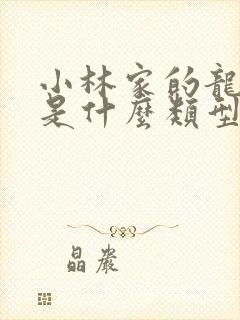 小林家的龍
是什麼類型
晶岩